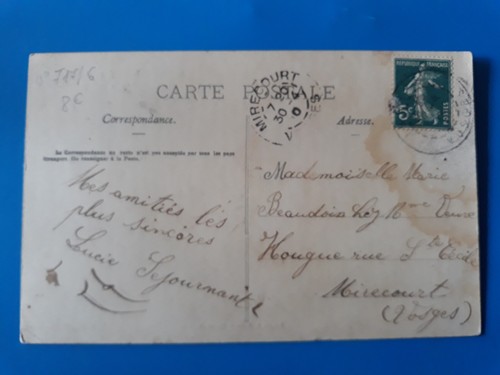 715/6
8c
CARTE POSTALE
MIRECOURT
7 30
30
RÉPUBLIQUE FRANÇAISE
5c
POSTES
Correspondance.
Adresse.
La Correspondance au recto n'est pas acceptée par tous les pays
étrangers. (Se renseigner à la Poste.)
Mes amitiés les
plus sincères
Lucie Sejournant
Mademoiselle Marie
Beaudoin chez Mme Veuve
Hougue rue Ste Cécile
Mirecourt
(Vosges)